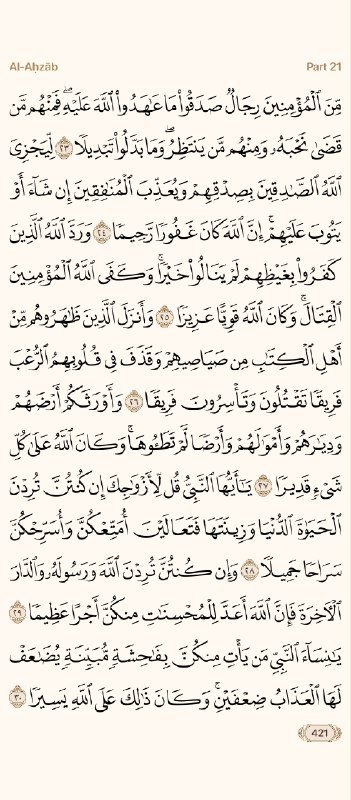 Al-Aḥzāb Part 21
مِّنَ ٱلْمُؤْمِنِينَ رِجَالٌ صَدَقُوا۟ مَا عَـٰهَدُوا۟ ٱللَّهَ عَلَيْهِ ۖ فَمِنْهُم مَّن
قَضَىٰ نَحْبَهُۥ وَمِنْهُم مَّن يَنتَظِرُ ۖ وَمَا بَدَّلُوا۟ تَبْدِيلًا ٢٣ لِّيَجْزِىَ
ٱللَّهُ ٱلصَّـٰدِقِينَ بِصِدْقِهِمْ وَيُعَذِّبَ ٱلْمُنَـٰفِقِينَ إِن شَآءَ أَوْ
يَتُوبَ عَلَيْهِمْ ۚ إِنَّ ٱللَّهَ كَانَ غَفُورًا رَّحِيمًا ٢٤ وَرَدَّ ٱللَّهُ ٱلَّذِينَ
كَفَرُوا۟ بِغَيْظِهِمْ لَمْ يَنَالُوا۟ خَيْرًا ۚ وَكَفَى ٱللَّهُ ٱلْمُؤْمِنِينَ
ٱلْقِتَالَ ۚ وَكَانَ ٱللَّهُ قَوِيًّا عَزِيزًا ٢٥ وَأَنزَلَ ٱلَّذِينَ ظَـٰهَرُوهُم مِّنْ
أَهْلِ ٱلْكِتَـٰبِ مِن صَيَاصِيهِمْ وَقَذَفَ فِى قُلُوبِهِمُ ٱلرُّعْبَ
فَرِيقًا تَقْتُلُونَ وَتَأْسِرُونَ فَرِيقًا ٢٦ وَأَوْرَثَكُمْ أَرْضَهُمْ
وَدِيَـٰرَهُمْ وَأَمْوَٰلَهُمْ وَأَرْضًا لَّمْ تَطَـُٔوهَا ۚ وَكَانَ ٱللَّهُ عَلَىٰ كُلِّ
شَىْءٍ قَدِيرًا ٢٧ يَـٰٓأَيُّهَا ٱلنَّبِىُّ قُل لِّأَزْوَٰجِكَ إِن كُنتُنَّ تُرِدْنَ
ٱلْحَيَوٰةَ ٱلدُّنْيَا وَزِينَتَهَا فَتَعَالَيْنَ أُمَتِّعْكُنَّ وَأُسَرِّحْكُنَّ
سَرَاحًا جَمِيلًا ٢٨ وَإِن كُنتُنَّ تُرِدْنَ ٱللَّهَ وَرَسُولَهُۥ وَٱلدَّارَ
ٱلْـَٔاخِرَةَ فَإِنَّ ٱللَّهَ أَعَدَّ لِلْمُحْسِنَـٰتِ مِنكُنَّ أَجْرًا عَظِيمًا ٢٩
يَـٰنِسَآءَ ٱلنَّبِىِّ مَن يَأْتِ مِنكُنَّ بِفَـٰحِشَةٍ مُّبَيِّنَةٍ يُضَـٰعَفْ
لَهَا ٱلْعَذَابُ ضِعْفَيْنِ ۚ وَكَانَ ذَٰلِكَ عَلَى ٱللَّهِ يَسِيرًا ٣٠
421